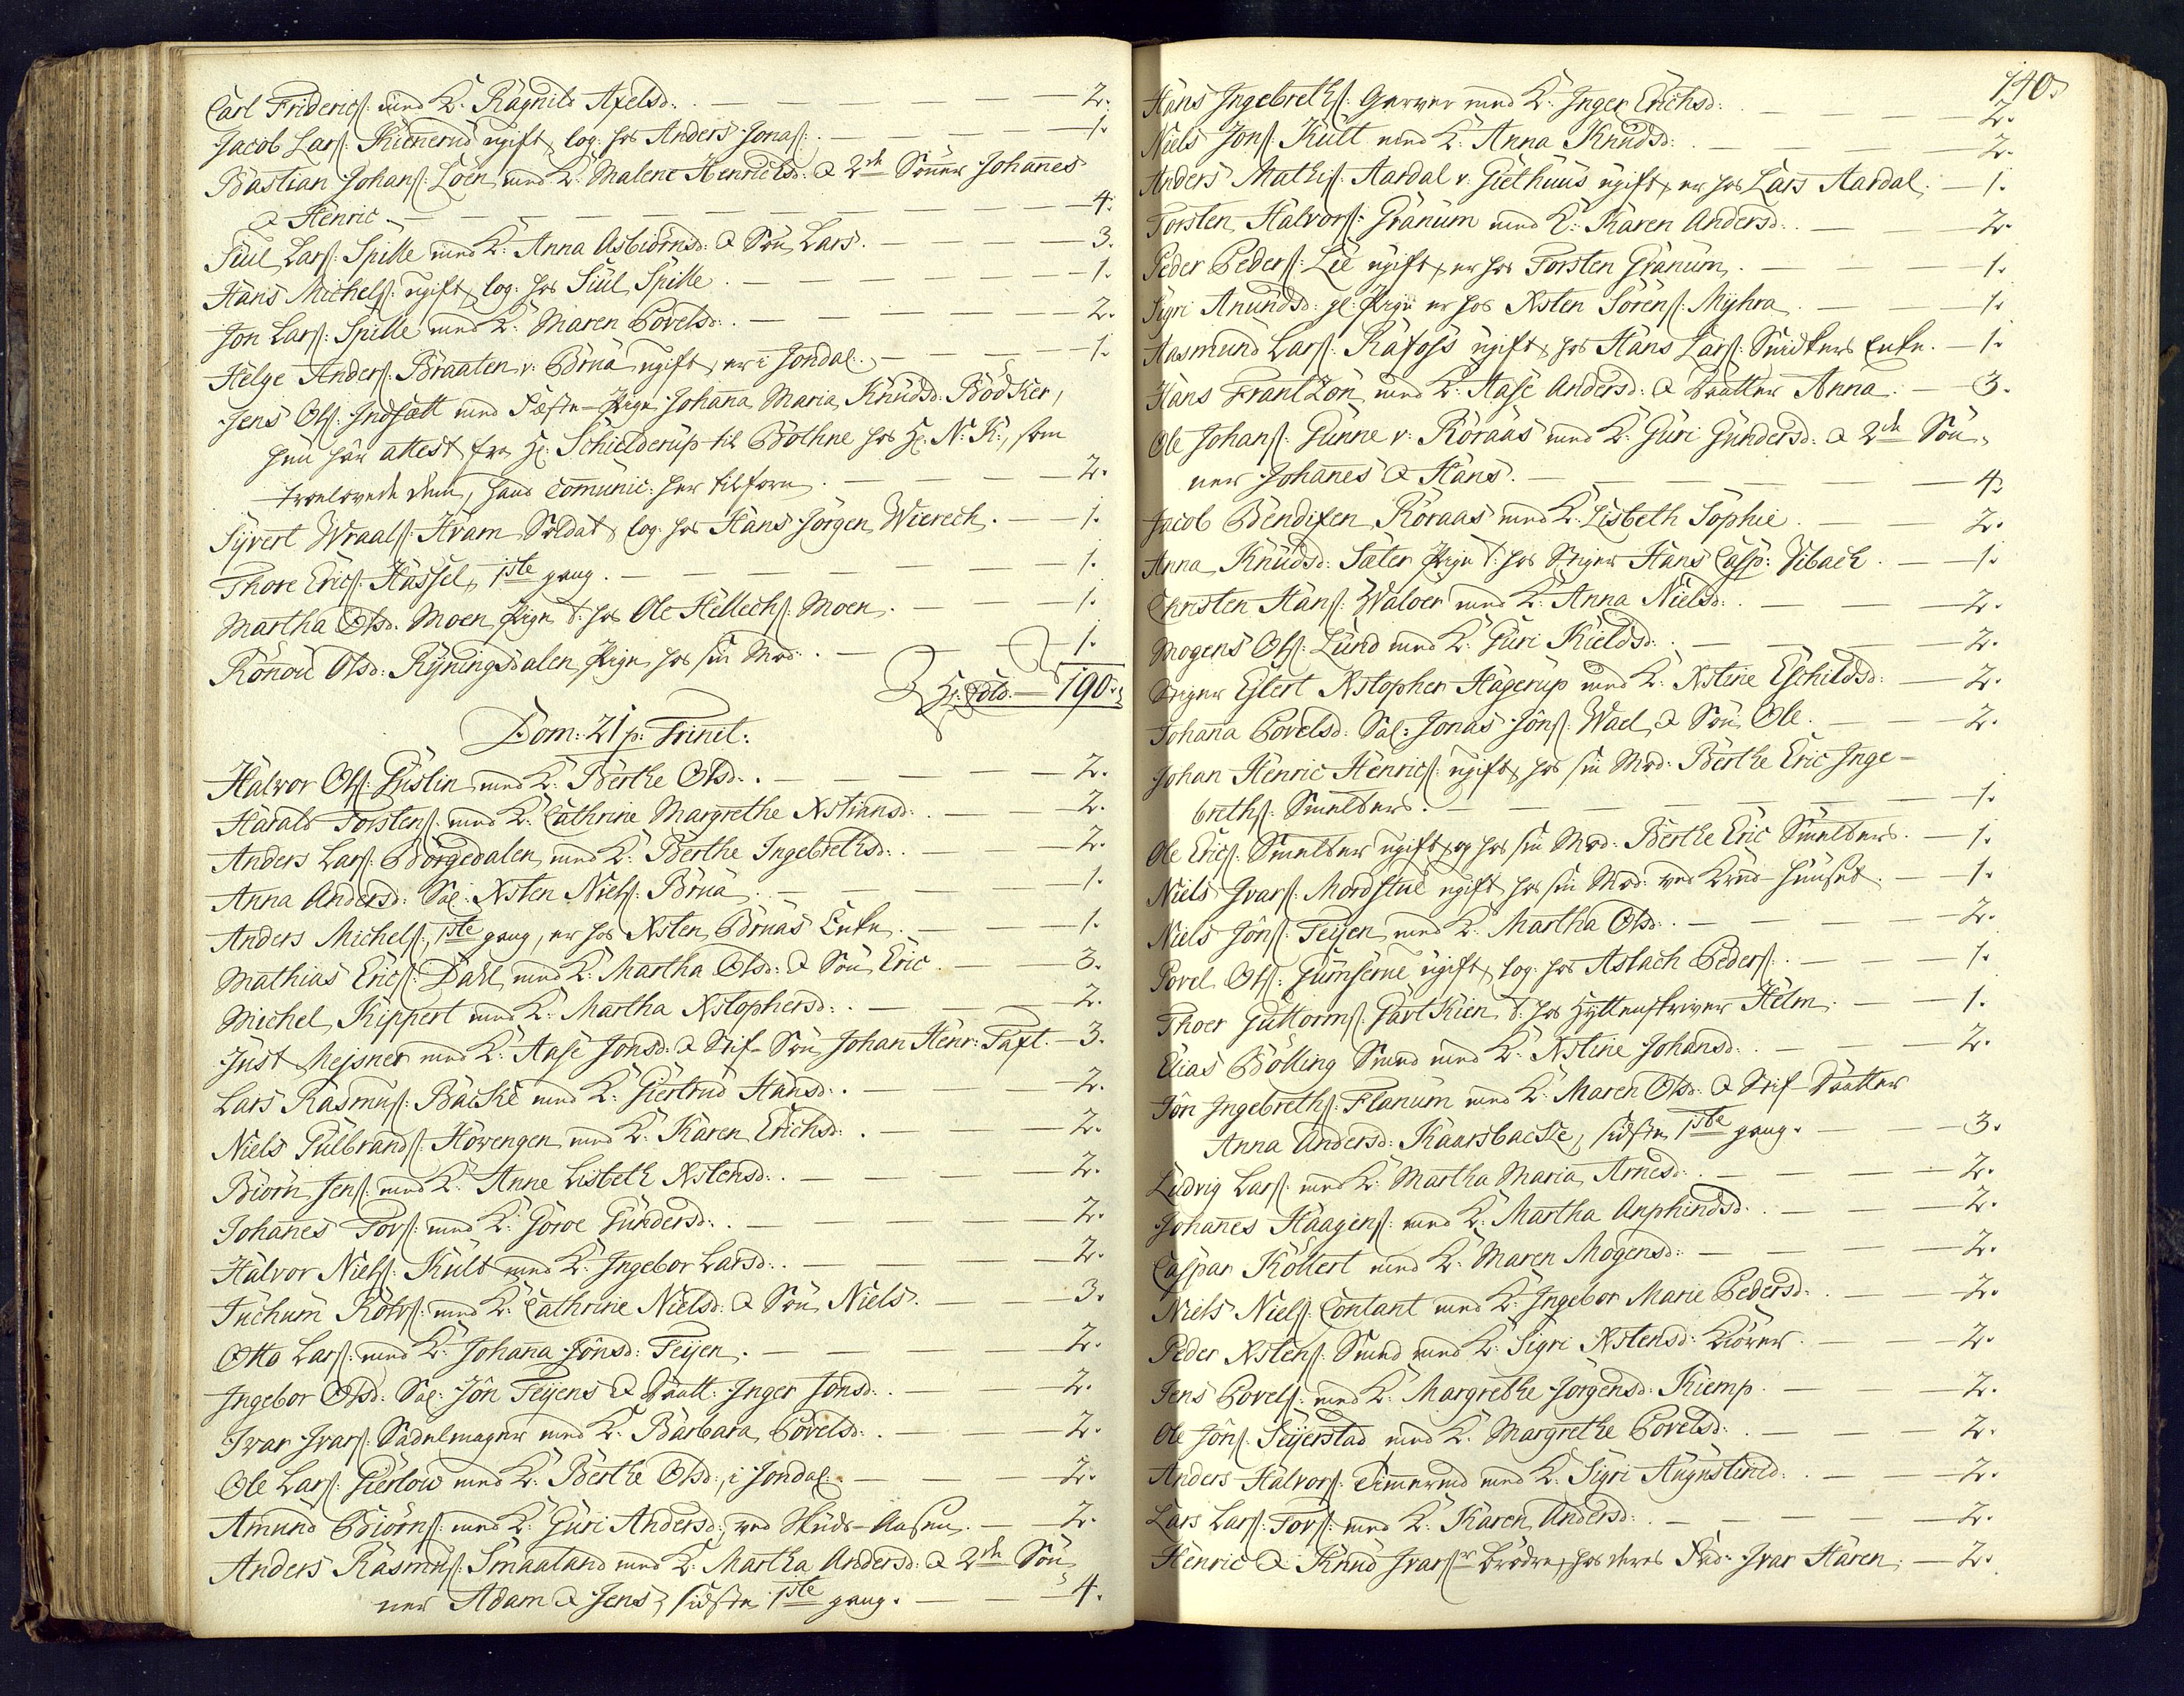 Carl Friderics: med K: Ragnild Axelsd: . — — — — 2.
Jacob Lars: Kiennerud ugift, log: hos Anders Jonas: . — — — 1.
Bastian Johans: Loen med K: Malene Henrichsd: & 2de Sönner Johannes
& Henric — — — — — — 4.
Siul Lars: Spille med K: Anna Asbiörnsd: & Sön Lars. — — — 3.
Hans Michels: ugift, log: hos Siul Spille. — — — 1.
Jon Lars: Spille med K: Maren Povelsd: . — — — — 2.
Helge Anders: Braaten v: Brua ugift, er i Jondal. — — — 1.
Jens Ols: Indsatt med Fæste-Pige Johanna Maria Knudsd: Bödker,
hun har attest fra Hr: Schielderup til Bothne hos Hr: N: K:, som
trolovede dem, hand communic: her tilforn. — — — 2.
Syvert Wraals: Hvam Soldat, log: hos Hans Jörgen Wierech. — 1.
Thore Erics: Hassel, 1ste gang. — — — — 1.
Martha Olsd: Moen Pige t: hos Ole Hellechs: Moen. — — 1.
Rönou Olsd: Ryningsdalen Pige, hos sin Mod: . — — 1.
190.
Dom: 21 p: Trinit:
Halvor Ols: Gustin med K: Berthe Olsd: . — — — — 2.
Harald Torstens: med K: Cathrine Margrethe Xstiansd: . — — 2.
Anders Lars: Borgedalen med K: Berthe Ingebrethsd: . — — 2.
Anna Andersd: Sal: Xsten Niels: Brua. — — — 1.
Anders Michels:, 1ste gang, er hos Xsten Bruas Enke. — — 1.
Mathias Erics: Dahl med K: Martha Olsd: & Sön Eric. — — 3.
Michel Kippert med K: Martha Xstophersd: . — — — 2.
Just Mejsner med K: Aase Jonsd: & Stif-Sön Johan Henr: Taft. — 3.
Lars Rasmus: Backe med K: Giertrud Hansd: . — — — 2.
Niels Gulbrands: Hovengen med K: Karen Erichsd: . — — — 2.
Biörn Jens: med K: Anne Lisbeth Xstensd: . — — — 2.
Johannes Tors: med K: Göroe Gundersd: . — — — 2.
Halvor Niels: Kult med K: Ingebor Larsd: . — — — 2.
Juchum Rolvs: med K: Cathrine Nielsd: & Sön Niels. — — 3.
Otto Lars: med K: Johanna Jönsd: Feyen. — — — 2.
Ingebor Olsd: Sal: Jön Feyens & Daatt: Inger Jonsd: . — — 2.
Ivar Ivars: Sadelmager med K: Barbara Povelsd: . — — — 2.
Ole Lars: Gierlow med K: Berthe Olsd:, i Jondal. — — — 2.
Amund Biörns: med K: Guri Andersd:, ved Skuds-Aasen. — — 2.
Anders Rasmus: Smaaland med K: Martha Andersd: & 2de Sön-
ner Adam & Jens, sidste 1ste gang. — — — 4.
140.
Hans Ingebreths: Garver med K: Inger Erichsd: . — — — 2.
Niels Jons: Kult med K: Anna Knudsd: . — — — 2.
Anders Mathis: Aardal v: Giethuus ugift, er hos Lars Aardal. — 1.
Torsten Halvors: Granum med K: Karen Andersd: . — — 2.
Peder Peders: Lie ugift, er hos Torsten Granum. — — 1.
Sigri Anundsd: gl: Pige er hos Xsten Sörens: Myhra. — — 1.
Aasmund Lars: Rafoss ugift, hos Hans Lars: Snidkers Enke. — 1.
Hans Frantzön med K: Aase Andersd: & Daatter Anna. — 3.
Ole Johans: Gunne v: Röraas med K: Guri Gundersd: & 2de Sön-
ner Johannes & Hans. — — — — 4.
Jacob Bendixen Röraas med K: Lisbeth Sophie. — — 2.
Anna Knudsd: Sæter Pige t: hos Stiger Hans Casp: Vibach. — 1.
Christen Hans: Waloer med K: Anna Nielsd: . — — — 2.
Mogens Ols: Lund med K: Guri Kieldsd: . — — — 2.
Stiger Eylert Xstopher Hagerup med K: Xstine Eschildsd: — 2.
Johanna Povelsd: Sal: Jonas Jöns: Wael & Sön Ole. — — 2.
Johan Henric Henrics: ugift, hos sin Mod: Berthe Eric Inge-
breths: Smelters. — — — — 1.
Ole Erics: Smelter ugift, og hos sin Mod: Berthe Eric Smelters. — 1.
Niels Ivars: Mordstue ugift hos sin Mod: ved Krud-Huuset. — 1.
Niels Jöns: Feyen med K: Martha Olsd: . — — — 2.
Povel Ols: Gumserue ugift, log: hos Aslach Peders: . — — 1.
Thoer Guttorms: Gavlkien t: hos Hyttenskriver Helm. — — 1.
Elias Bölling Smed med K: Xstine Johansd: . — — — 2.
Jön Ingebreths: Flanum med K: Maren Olsd: & Stif-Daatter
Anna Andersd: Kaarsbacke, sidste 1ste gang. — — 3.
Ludvig Lars: med K: Martha Maria Arnesd: . — — — 2.
Johannes Haagens: med K: Martha Anphindsd: . — — 2.
Caspar Kollert med K: Maren Mogensd: — — — 2.
Niels Niels: Contant med K: Ingebor Marie Pedersd: . — — 2.
Peder Xstens: Smed med K: Sigri Xstensd: Kiörer. — — 2.
Jens Povels: med K: Margrethe Jörgensd: Kiemp. — — 2.
Ole Jöns: Seyerstad med K: Margrethe Povelsd: . — — 2.
Anders Halvors: Timmerud med K: Sigri Augustind: . — — 2.
Lars Lars: Tors: med K: Karen Andersd: . — — — 2.
Henric & Knud Ivarsr Brödre, hos deres Fad: Ivar Haren. — 2.